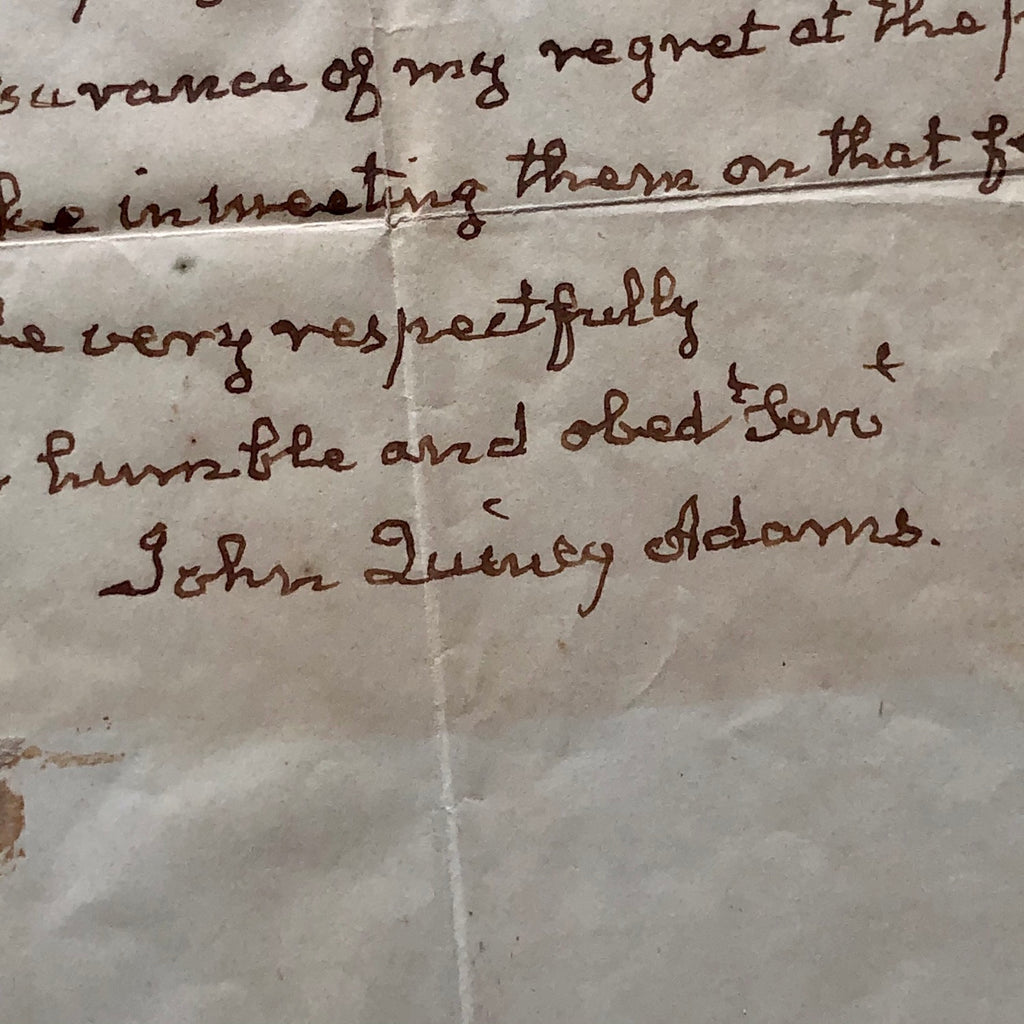 surance of my regret at the
ke in meeting them on that
very respectfully
humble and obedᵗ Servᵗ
John Quincy Adams.